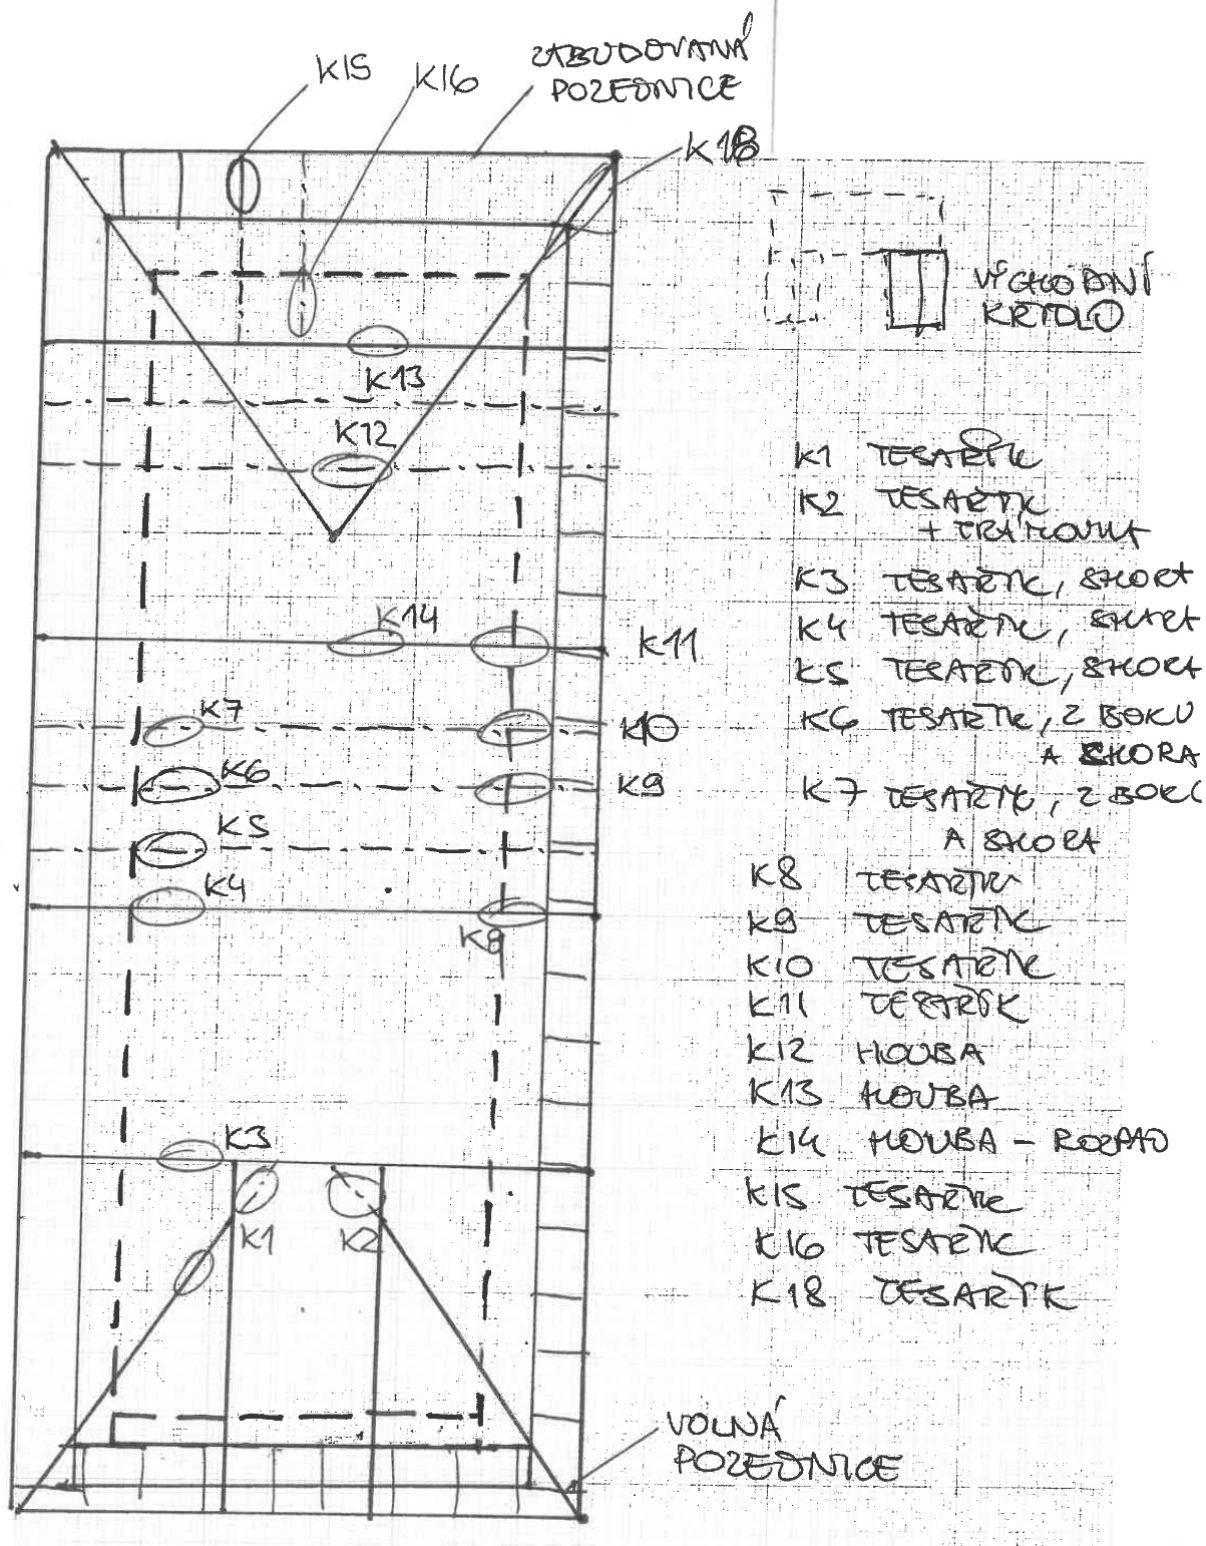 K15
K16
ZABUDOVANÁ
POZEDNICE
K18
VÝCHODNÍ
KŘÍDLO
K13
K12
K14
K11
K7
K10
K6
K9
K5
K4
K8
K3
K1
K2
K1 TESAŘÍK
K2 TESAŘÍK
+ TRÁMOVKA
K3 TESAŘÍK, SHORA
K4 TESAŘÍK, SHORA
K5 TESAŘÍK, SHORA
K6 TESAŘÍK, Z BOKU
A SHORA
K7 TESAŘÍK, Z BOKU
A SHORA
K8 TESAŘÍK
K9 TESAŘÍK
K10 TESAŘÍK
K11 TESAŘÍK
K12 HOUBA
K13 HOUBA
K14 HOUBA - ROZPAD
K15 TESAŘÍK
K16 TESAŘÍK
K18 TESAŘÍK
VOLNÁ
POZEDNICE